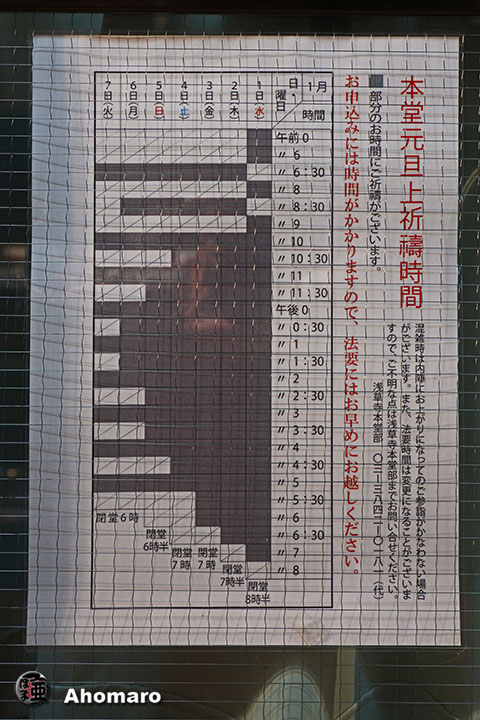 本堂元旦上祈禱時間
混雑時は内陣にお上がりになってのご参詣がかなわない場合
がございます。また、法要時間は変更になることがございま
すので、ご不明な点は浅草寺本堂部までお問い合せください。
浅草寺本堂部 〇三-三八四二-〇一八一(代)
■部分のお時間にご祈禱がございます。
お申込みには時間がかかりますので、法要にはお早めにお越しください。
1月 時間
日・曜日
1日(水)
2日(木)
3日(金)
4日(土)
5日(日)
6日(月)
7日(火)
午前0
〃 6
〃 6:30
〃 8
〃 8:30
〃 9
〃 10
〃 10:30
〃 11
〃 11:30
午後0
〃 0:30
〃 1
〃 1:30
〃 2
〃 2:30
〃 3
〃 3:30
〃 4
〃 4:30
〃 5
〃 5:30
〃 6
〃 6:30
〃 7
〃 8
閉堂6時
閉堂6時半
閉堂7時
閉堂7時
閉堂7時半
閉堂8時半
Ahomaro